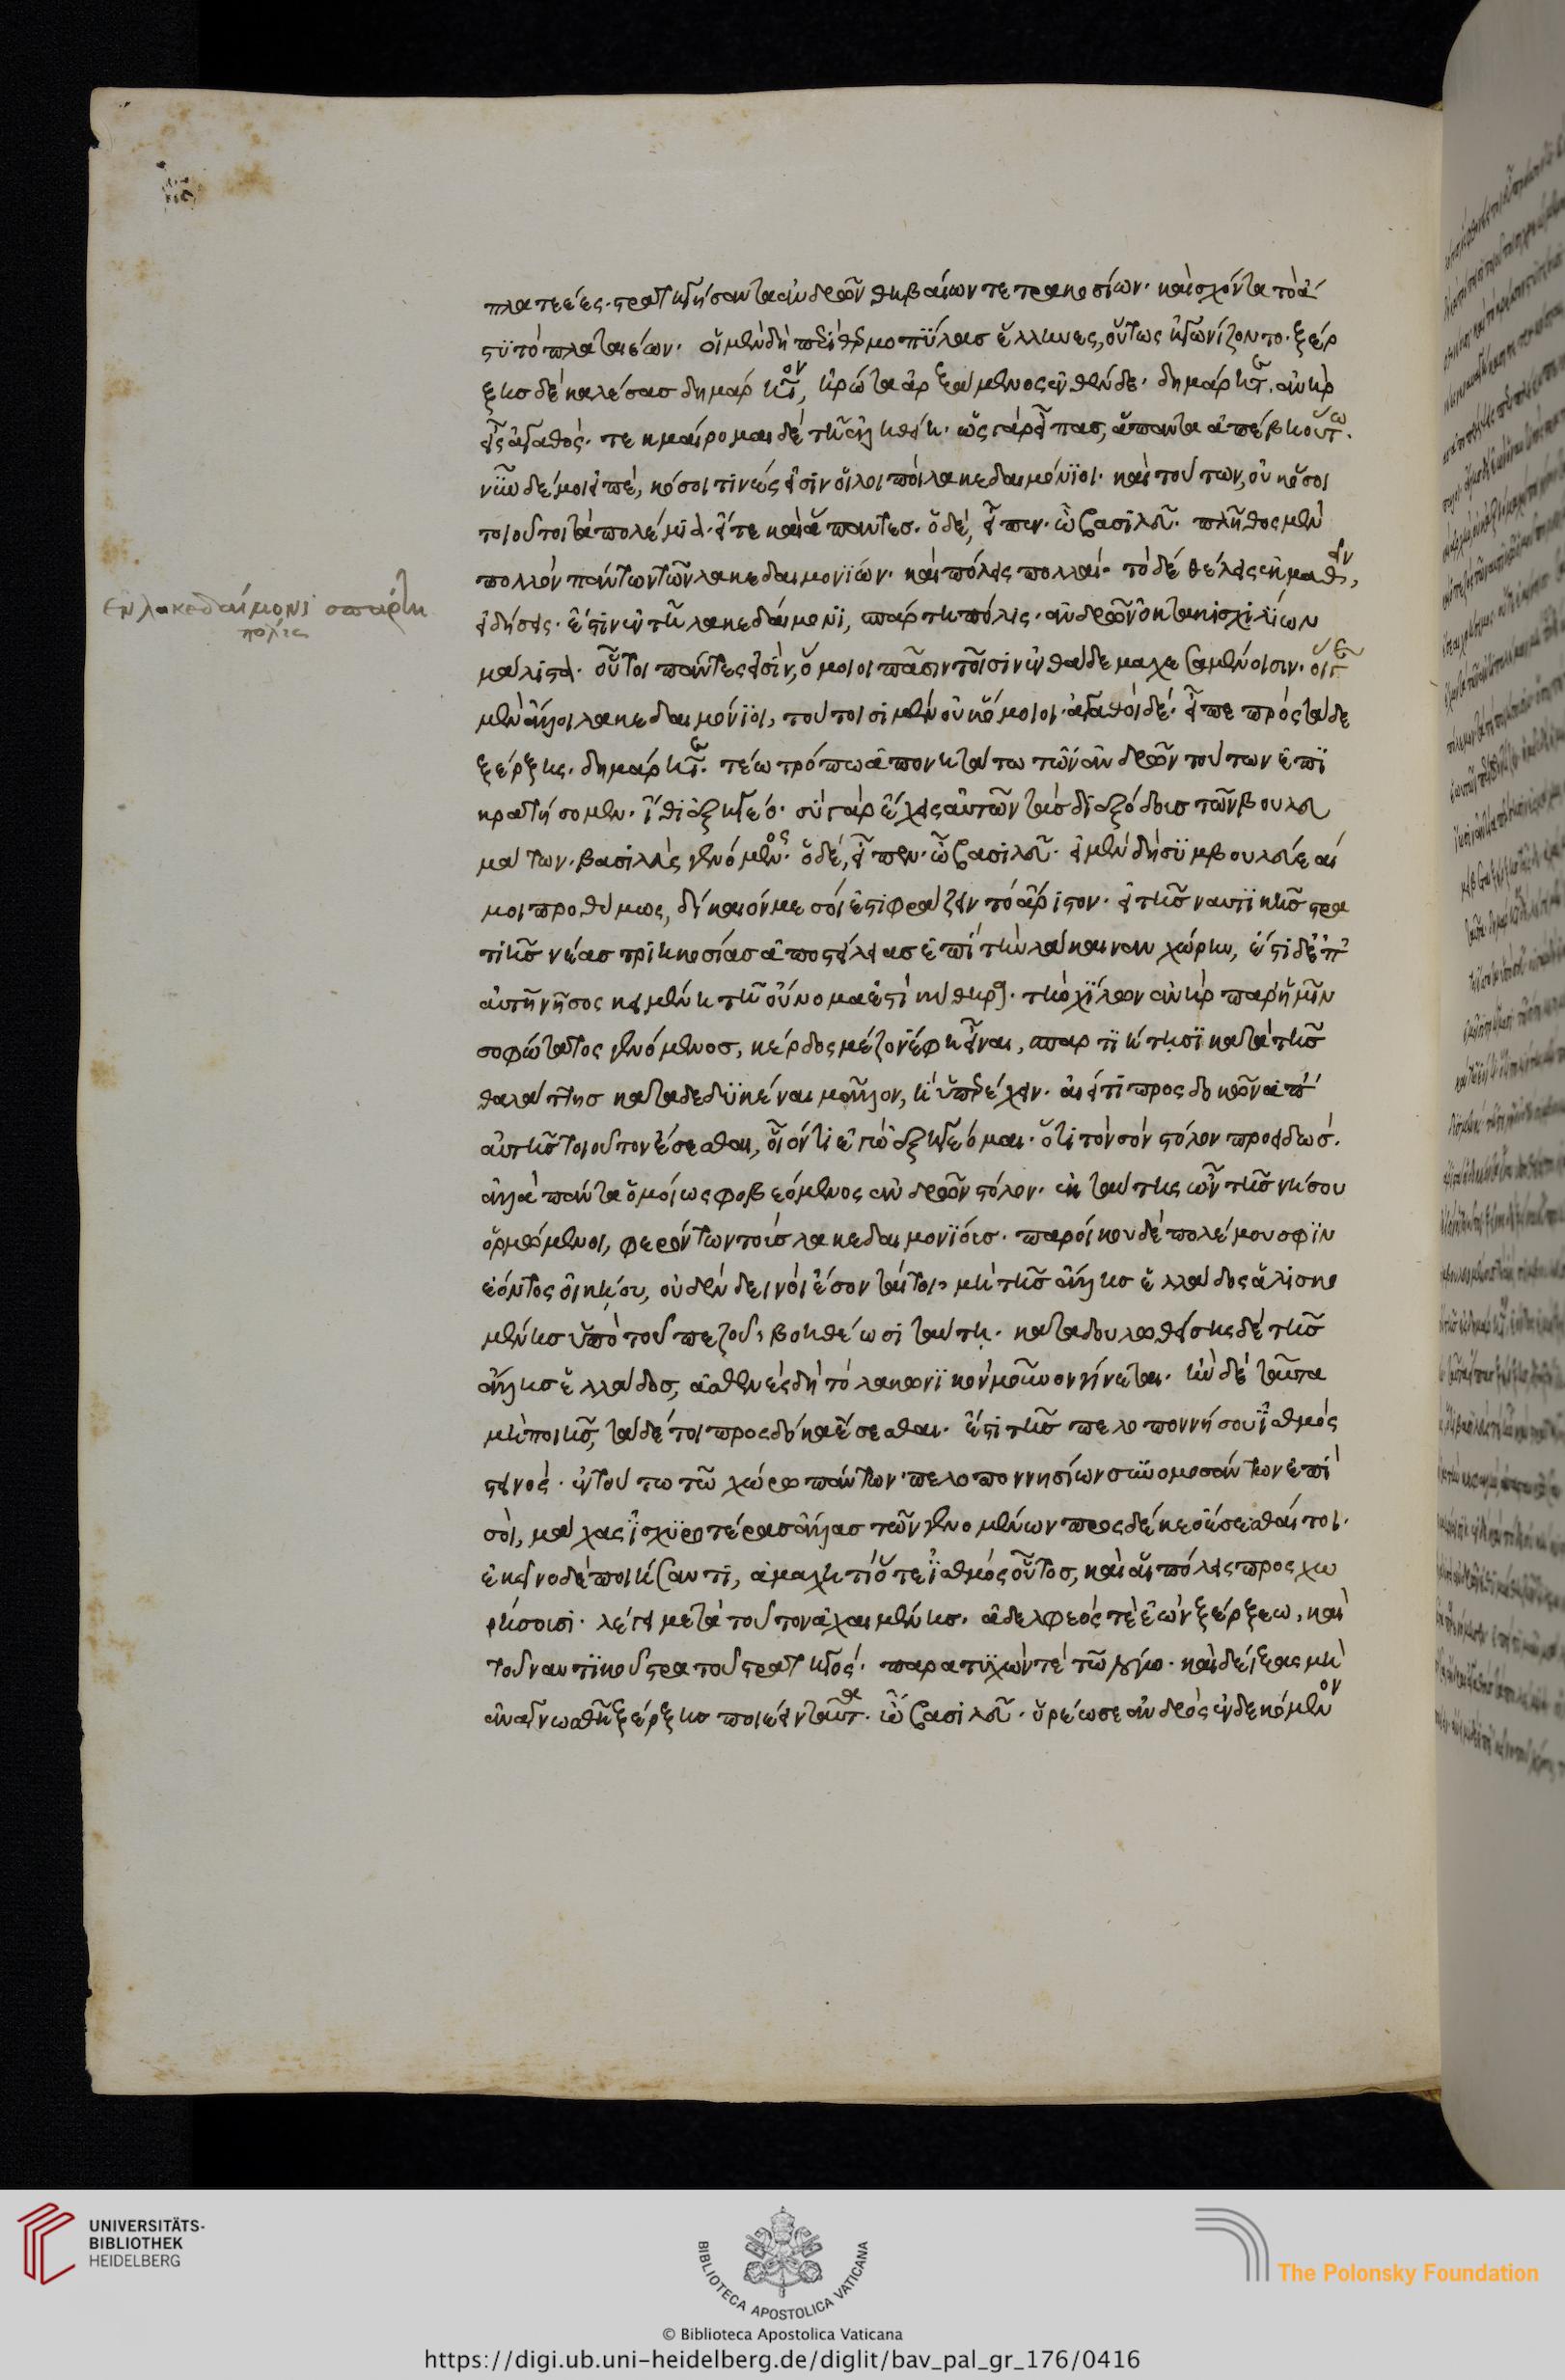 πλατεέες· στρατηγήσαντα ἀνδρῶν θηβαίων τετρακοσίων· καὶ σχόντα τὸ ἄ
στυ τὸ πλαταιέων· οἱ μὲν δὴ περὶ θερμοπύλας ἕλληνες, οὕτως ἠγωνίζοντο· ξέρ
ξης δὲ καλέσας δημάρητον, εἰρώτα ἀρξάμενος ἐνθένδε· δημάρητε· ἀνὴρ
εἶς ἀγαθός· τεκμαίρομαι δὲ τῆ ἀληθείη· ὅσα γὰρ εἶπας, ἅπαντα ἀπέβη οὕτω·
νῦν δέ μοι εἰπέ, κόσοι τινές εἰσιν οἱ λοιποὶ λακεδαιμόνιοι· καὶ τούτων, ὁκόσοι
τοιοῦτοι τὰ πολέμια· εἴτε καὶ ἅπαντες· ὁ δέ, εἶπεν· ὦ βασιλεῦ· πλῆθος μὲν
πολλὸν πάντων τῶν λακεδαιμονίων· καὶ πόλεις πολλαί· τὸ δὲ θέλεις ἐκμαθεῖν,
εἰδήσεις· ἔστιν ἐν τῆ λακεδαίμονι, σπάρτη πόλις· ἀνδρῶν ὀκτακισχιλίων
μάλιστα· οὗτοι πάντες εἰσὶν, ὅμοιοι πᾶσιν τοῖσιν ἐνθάδε μαχεσαμένοισιν· οἵ γε
μὲν ἄλλοι λακεδαιμόνιοι, τούτοισι μὲν οὐκ ὅμοιοι· ἀγαθοὶ δέ· εἶπε πρὸς τάδε
ξέρξης· δημάρητε· τέω τρόπω ἀπονητάτω τῶν ἀνδρῶν τούτων ἐπι
κρατήσομεν· ἴθι ἐξηγέο· σὺ γὰρ ἔχεις αὐτῶν τὰς διεξόδους τῶν βουλευ
μάτων· βασιλεὺς γενόμενος· ὁ δέ, εἶπεν· ὦ βασιλεῦ· εἰ μὲν δὴ συμβουλεύεαί
μοι προθύμως, δίκαιόν με σοί ἐστι φράζειν τὸ ἄριστον· εἰ τῆς ναυτικῆς στρα
τιῆς νέας τριηκοσίας ἀποστείλειας ἐπὶ τὴν λάκαιναν χώρην, ἔστι δὲ ἐπ'
αὐτῆ νῆσος κειμένη τῆ οὔνομα ἐστὶ κύθηρα· τὴν χίλων ἀνὴρ παρ' ἡμῖν
σοφώτατος γενόμενος, κέρδος μέζον ἔφη εἶναι, σπαρτιήτησι κατὰ τῆς
θαλάττης καταδεδυκέναι μᾶλλον, ἢ ὑπερέχειν· αἰεί τι προσδοκῶν ἀπ'
αὐτῆς τοιοῦτον ἔσεσθαι, οἷόν τι ἐγὼ ἐξηγέομαι· ὅτι τὸν σὸν στόλον προειδώς·
ἀλλὰ πάντα ὁμοίως φοβεόμενος ἀνδρῶν στόλον· ἐκ ταύτης ὦν τῆς νήσου
ὁρμώμενοι, φερόντων τοὺς λακεδαιμονίους· παροίκου δὲ πολέμου σφιν
ἐόντος οἰκηίου, οὐδὲν δεινοὶ ἔσονταί τοι, μὴ τῆς ἄλλης ἑλλάδος ἁλισκο
μένης ὑπὸ τοῦ πεζοῦ, βοηθέωσι ταύτη· καταδουλωθείσης δὲ τῆς
ἄλλης ἑλλάδος, ἀσθενὲς δὴ τὸ λακωνικὸν μοῦνον γίνεται· ἢν δὲ ταῦτα
μὴ ποιῆς, τάδε τοι προσδόκα ἔσεσθαι· ἔστι τῆς πελοποννήσου ἰσθμὸς
στεινός· ἐν τούτω τῶ χώρω πάντων πελοποννησίων συνομοσάντων ἐπὶ
σοὶ, μάχας ἰσχυροτέρας ἄλλας τῶν γενομένων προσδέκεο ἔσεσθαί τοι·
ἐκεῖνο δὲ ποιήσαντι, ἀμαχητὶ ὅ τε ἰσθμὸς οὗτος, καὶ αἱ πόλεις προσχω
ρήσουσι· λέγει μετὰ τοῦτον ἀχαιμένης· ἀδελφεός τε ἐὼν ξέρξεω, καὶ
τοῦ ναυτικοῦ στρατοῦ στρατηγός· παρατυχών τε τῶ λόγω· καὶ δείσας μὴ
ἀναγνωσθῆ ξέρξης ποιέειν ταῦτα· ὦ βασιλεῦ· ὁρέω σε ἀνδρὸς ἐνδεκόμενον
ἐν λακεδαίμονι σπάρτη
πόλις
UNIVERSITÄTS-
BIBLIOTHEK
HEIDELBERG
BIBLIOTECA APOSTOLICA VATICANA
The Polonsky Foundation
© Biblioteca Apostolica Vaticana
https://digi.ub.uni-heidelberg.de/diglit/bav_pal_gr_176/0416